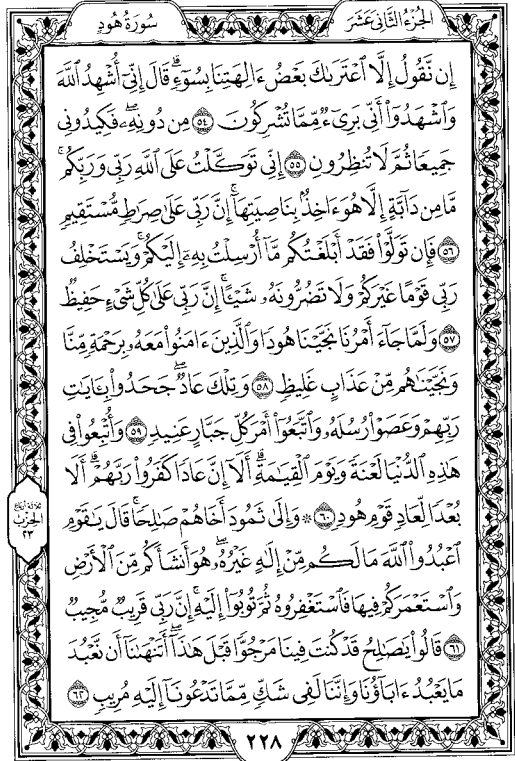 الجزء الثاني عشر
سورة هود
إِن نَّقُولُ إِلَّا ٱعْتَرَىٰكَ بَعْضُ ءَالِهَتِنَا بِسُوٓءٍۗ قَالَ إِنِّىٓ أُشْهِدُ ٱللَّهَ
وَٱشْهَدُوٓا۟ أَنِّى بَرِىٓءٌ مِّمَّا تُشْرِكُونَ ٥٤ مِن دُونِهِۦۖ فَكِيدُونِى
جَمِيعًا ثُمَّ لَا تُنظِرُونِ ٥٥ إِنِّى تَوَكَّلْتُ عَلَى ٱللَّهِ رَبِّى وَرَبِّكُمۚ
مَّا مِن دَآبَّةٍ إِلَّا هُوَ ءَاخِذٌۢ بِنَاصِيَتِهَآۚ إِنَّ رَبِّى عَلَىٰ صِرَٰطٍ مُّسْتَقِيمٍ
٥٦ فَإِن تَوَلَّوْا۟ فَقَدْ أَبْلَغْتُكُم مَّآ أُرْسِلْتُ بِهِۦٓ إِلَيْكُمْۚ وَيَسْتَخْلِفُ
رَبِّى قَوْمًا غَيْرَكُمْ وَلَا تَضُرُّونَهُۥ شَيْـًٔاۚ إِنَّ رَبِّى عَلَىٰ كُلِّ شَىْءٍ حَفِيظٌ
٥٧ وَلَمَّا جَآءَ أَمْرُنَا نَجَّيْنَا هُودًا وَٱلَّذِينَ ءَامَنُوا۟ مَعَهُۥ بِرَحْمَةٍ مِّنَّا
وَنَجَّيْنَٰهُم مِّنْ عَذَابٍ غَلِيظٍ ٥٨ وَتِلْكَ عَادٌۖ جَحَدُوا۟ بِـَٔايَٰتِ
رَبِّهِمْ وَعَصَوْا۟ رُسُلَهُۥ وَٱتَّبَعُوٓا۟ أَمْرَ كُلِّ جَبَّارٍ عَنِيدٍ ٥٩ وَأُتْبِعُوا۟ فِى
هَٰذِهِ ٱلدُّنْيَا لَعْنَةً وَيَوْمَ ٱلْقِيَٰمَةِۗ أَلَآ إِنَّ عَادًا كَفَرُوا۟ رَبَّهُمْۗ أَلَا
بُعْدًا لِّعَادٍ قَوْمِ هُودٍ ٦٠ ۞ وَإِلَىٰ ثَمُودَ أَخَاهُمْ صَٰلِحًاۚ قَالَ يَٰقَوْمِ
ٱعْبُدُوا۟ ٱللَّهَ مَا لَكُم مِّنْ إِلَٰهٍ غَيْرُهُۥۖ هُوَ أَنشَأَكُم مِّنَ ٱلْأَرْضِ
وَٱسْتَعْمَرَكُمْ فِيهَا فَٱسْتَغْفِرُوهُ ثُمَّ تُوبُوٓا۟ إِلَيْهِۚ إِنَّ رَبِّى قَرِيبٌ مُّجِيبٌ
٦١ قَالُوا۟ يَٰصَٰلِحُ قَدْ كُنتَ فِينَا مَرْجُوًّا قَبْلَ هَٰذَآۖ أَتَنْهَىٰنَآ أَن نَّعْبُدَ
مَا يَعْبُدُ ءَابَآؤُنَا وَإِنَّنَا لَفِى شَكٍّ مِّمَّا تَدْعُونَآ إِلَيْهِ مُرِيبٍ ٦٢
ثلاثة أرباع
الحزب
٢٣
٢٢٨